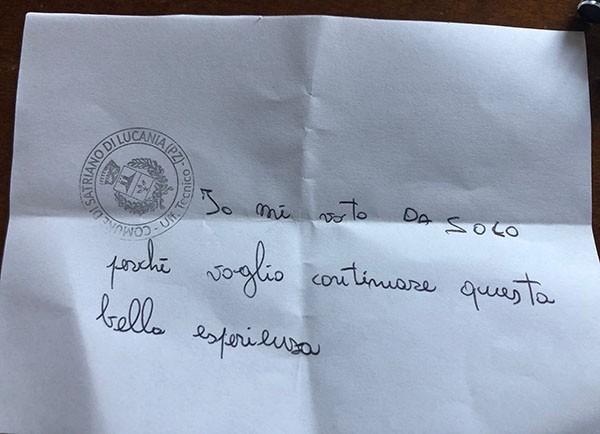 COMUNE DI SATRIANO DI LUCANIA (PZ) - Uff. Tecnico -
Io mi voto DA SOLO
perché voglio continuare questa
bella esperienza